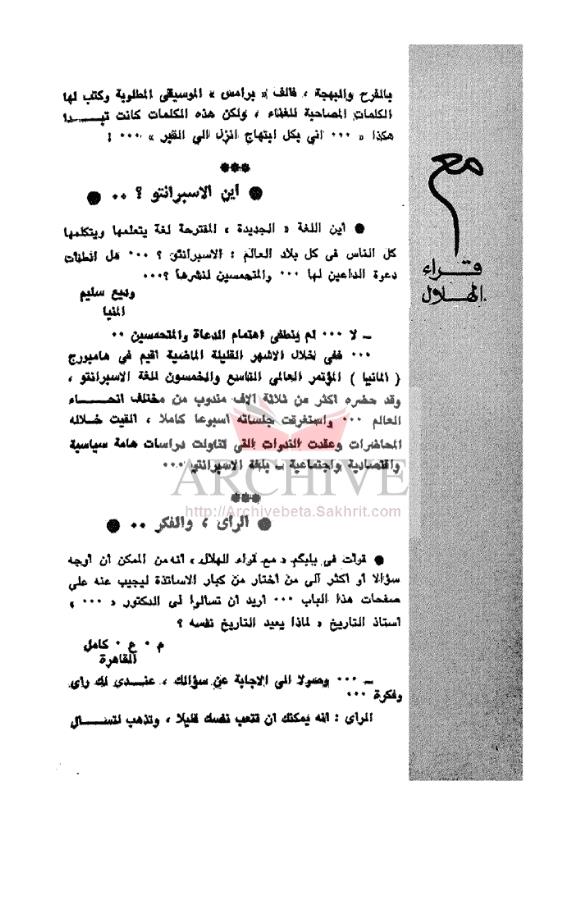 مع
قراء
الهلال
بالفرح والبهجة ، فالف « برامس » الموسيقى المطلوبة وكتب لها
الكلمات المصاحبة للغناء ، ولكن هذه الكلمات كانت تبـــدا
هكذا « ٠٠٠ انى بكل ابتهاج انزل الى القبر » ٠٠٠ !
***
● اين الاسبرانتو ؟ ٠٠ ●
● اين اللغة « الجديدة » المقترحة لغة يتعلمها ويتكلمها
كل الناس فى كل بلاد العالم : الاسبرانتو ؟ ٠٠٠ هل انطفات
دعوة الداعين لها ٠٠٠ والمتحمسين لنشرها ؟٠٠٠
وديع سليم
المنيا
ـ لا ٠٠٠ لم ينطفى اهتمام الدعاة والمتحمسين ٠٠
٠٠٠ ففى خلال الاشهر القليلة الماضية اقيم فى هامبورج
( المانيا ) المؤتمر العالمى التاسع والخمسون للغة الاسبرانتو ،
وقد حضره اكثر من ثلاثة الاف مندوب من مختلف انحـــاء
العالم ٠٠٠ واستغرقت جلساته اسبوعا كاملا ، القيت خـلاله
المحاضرات وعقدت الندوات التى تناولت دراسات هامة سياسية
واقتصادية واجتماعية ـ بلغة الاسبرانتو ٠٠٠
ARCHIVE
http://Archivebeta.Sakhrit.com
***
● الراى ، والفكر ٠٠ ●
● قرات فى بابكم « مع قراء الهلال » انه من الممكن ان اوجه
سؤالا او اكثر الى من اختار من كبار الاساتذة ليجيب عنه على
صفحات هذا الباب ٠٠٠ اريد ان تسالوا لى الدكتور « ٠٠٠ »
استاذ التاريخ « لماذا يعيد التاريخ نفسه ؟
م ٠ ع ٠ كامل
القاهرة
ـ ٠٠٠ وصولا الى الاجابة عن سؤالك ، عنـدى لك راى
وفكرة ٠٠٠
الراى : انه يمكنك ان تتعب نفسك قليلا ، وتذهب لتســـال